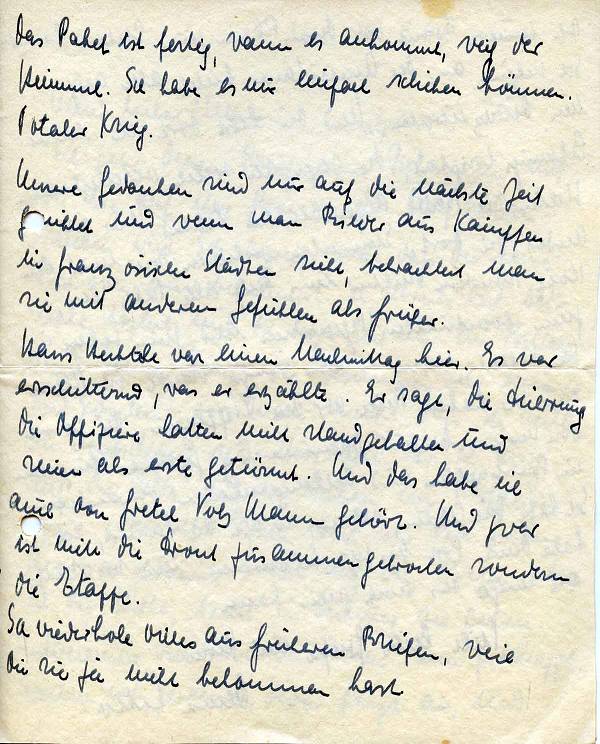 Das Paket ist fertig, wann es ankommt, weiß der
Himmel. Ich habe es nur einfach schicken können.
Totaler Krieg.
Unsere Gedanken sind nur auf die nächste Zeit
gerichtet und wenn man Bilder aus Kämpfen
in französischen Städten sieht, betrachtet man
sie mit anderen Gefühlen als früher.
Hans war einen Nachmittag hier. Es war
erschütternd, was er erzählte. Er sagt, die
die Offiziere hätten nicht standgehalten und
seien als erste getürmt. Und das habe ich
auch von Gretel Mann gehört. Und zwar
ist nicht die Front zusammengebrochen sondern
die Etappe.
Ich wiederhole vieles aus früheren Briefen, weil
Du sie ja nicht bekommen hast